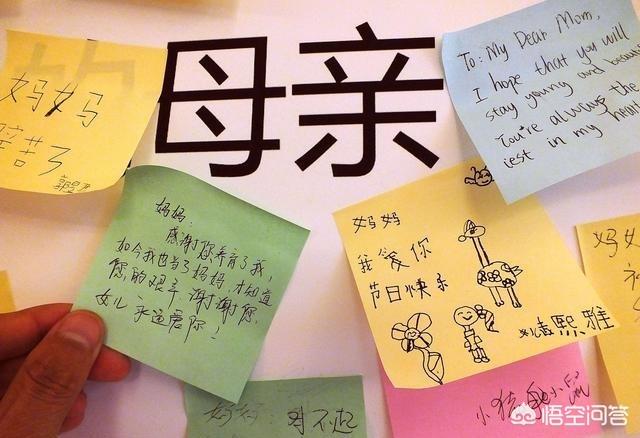 母亲
妈妈
辛苦了
To: My Dear Mom,
I hope that you will
stay young and
You're always the
best in my
妈妈:
感谢您养育了我,
如今我也当了妈妈,才知道
您的艰辛,谢谢您,
女儿永远爱你!
妈妈
我爱你
节日快乐
熙雅
妈妈:对不起
小熊
悟空问答